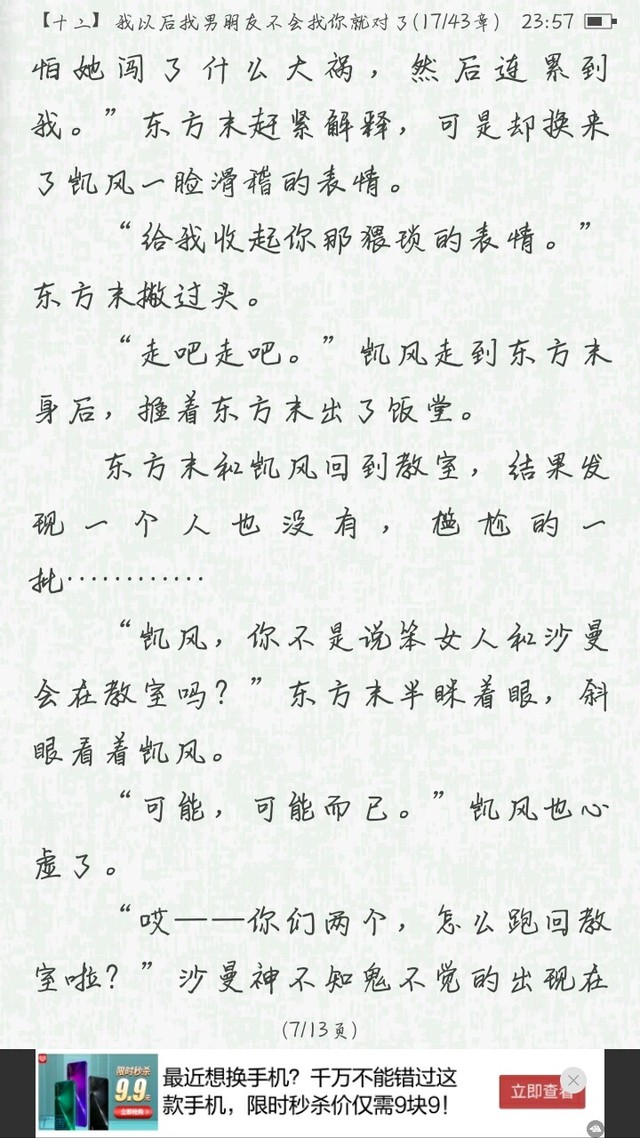 【十二】我以后找男朋友不会找你就对了(17/43章) 23:57
怕她闯了什么大祸，然后连累到
我。”东方末赶紧解释，可是却换来
了凯风一脸滑稽的表情。
“给我收起你那猥琐的表情。”
东方末撇过头。
“走吧走吧。”凯风走到东方末
身后，推着东方末出了饭堂。
东方末和凯风回到教室，结果发
现一个人也没有，尴尬的一
批…………
“凯风，你不是说笨女人和沙曼
会在教室吗？”东方末半眯着眼，斜
眼看着凯风。
“可能，可能而已。”凯风也心
虚了。
“哎——你们两个，怎么跑回教
室啦？”沙曼神不知鬼不觉的出现在
(7/13页)
限时秒杀
9.9元
最近想换手机？千万不能错过这
款手机，限时秒杀价仅需9块9！
立即查看